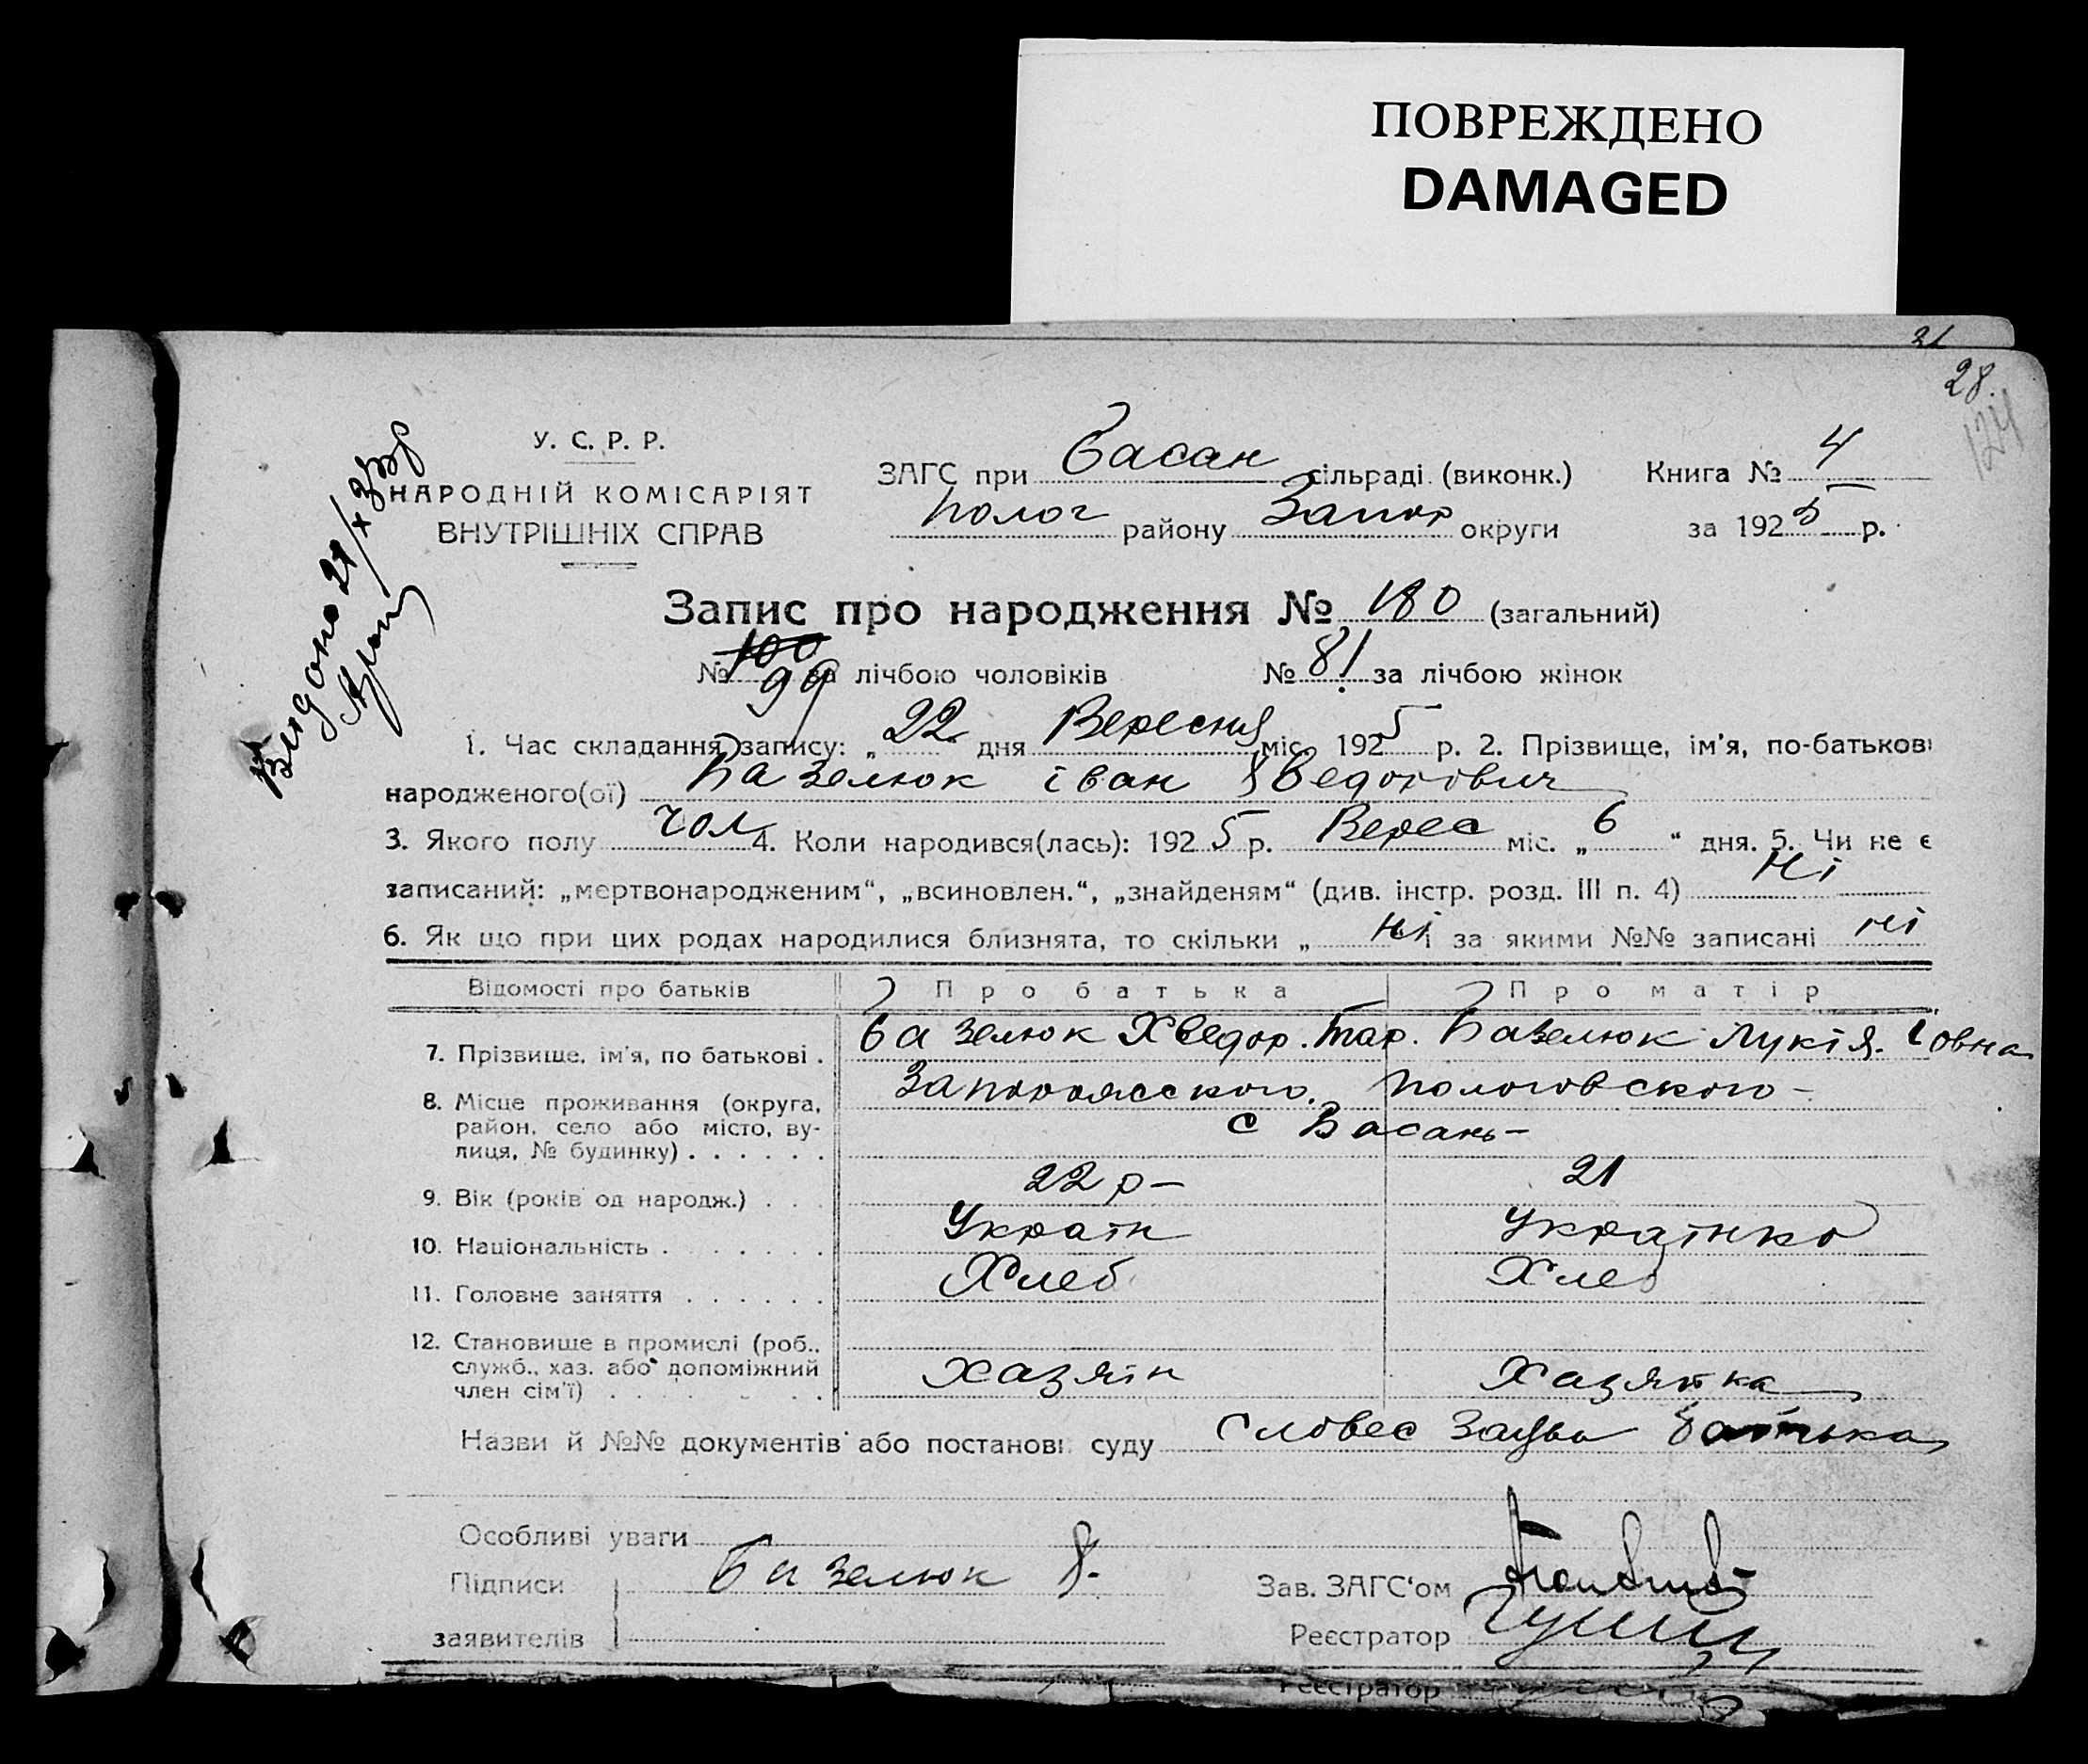 ПОВРЕЖДЕНО
DAMAGED
21
28.
124
У. С. Р. Р.
НАРОДНІЙ КОМІСАРІЯТ
ВНУТРІШНІХ СПРАВ
ЗАГС при Басан сільраді (виконк.)
Полог району Запор округи
Книга № 4
за 1925 р.
Видано 21/X
Запис про народження № 180 (загальний)
№ 100 99 за лічбою чоловіків № 81 за лічбою жінок
1. Час складання запису: „ 22 дня Вересня міс. 1925 р. 2. Прізвище, ім'я, по-батькові
народженого(ої) Базелюк іван Хведорович
3. Якого полу чол 4. Коли народився(лась): 1925 р. Верес міс. „ 6 “ дня. 5. Чи не є
записаний: „мертвонародженим“, „всиновлен.“, „знайденям“ (див. інстр. розд. III п. 4) Ні
6. Як що при цих родах народилися близнята, то скільки „ ні і за якими №№ записані ні
Відомості про батьків Про батька Про матір
7. Прізвище, ім'я, по батькові . Базелюк Хведор. Тар. Базелюк Лукія. Іовна
8. Місце проживання (округа, район, село або місто, вулиця, № будинку) . . . . . . Запорожського. Пологовського –
с Басань –
9. Вік (років од народж.) . . . 22 р – 21
10. Національність . . . . . . . Україн Українка
11. Головне заняття . . . . . . Хлеб Хлеб
12. Становище в промислі (роб., служб., хаз. або допоміжний член сім'ї) . . . . . Хазяїн Хазяйка
Назви й №№ документів або постанові суду Словес Заява батька
Особливі уваги
Підписи Базелюк Х.
заявителів
Зав. ЗАГС'ом
Реєстратор
Реєстратор